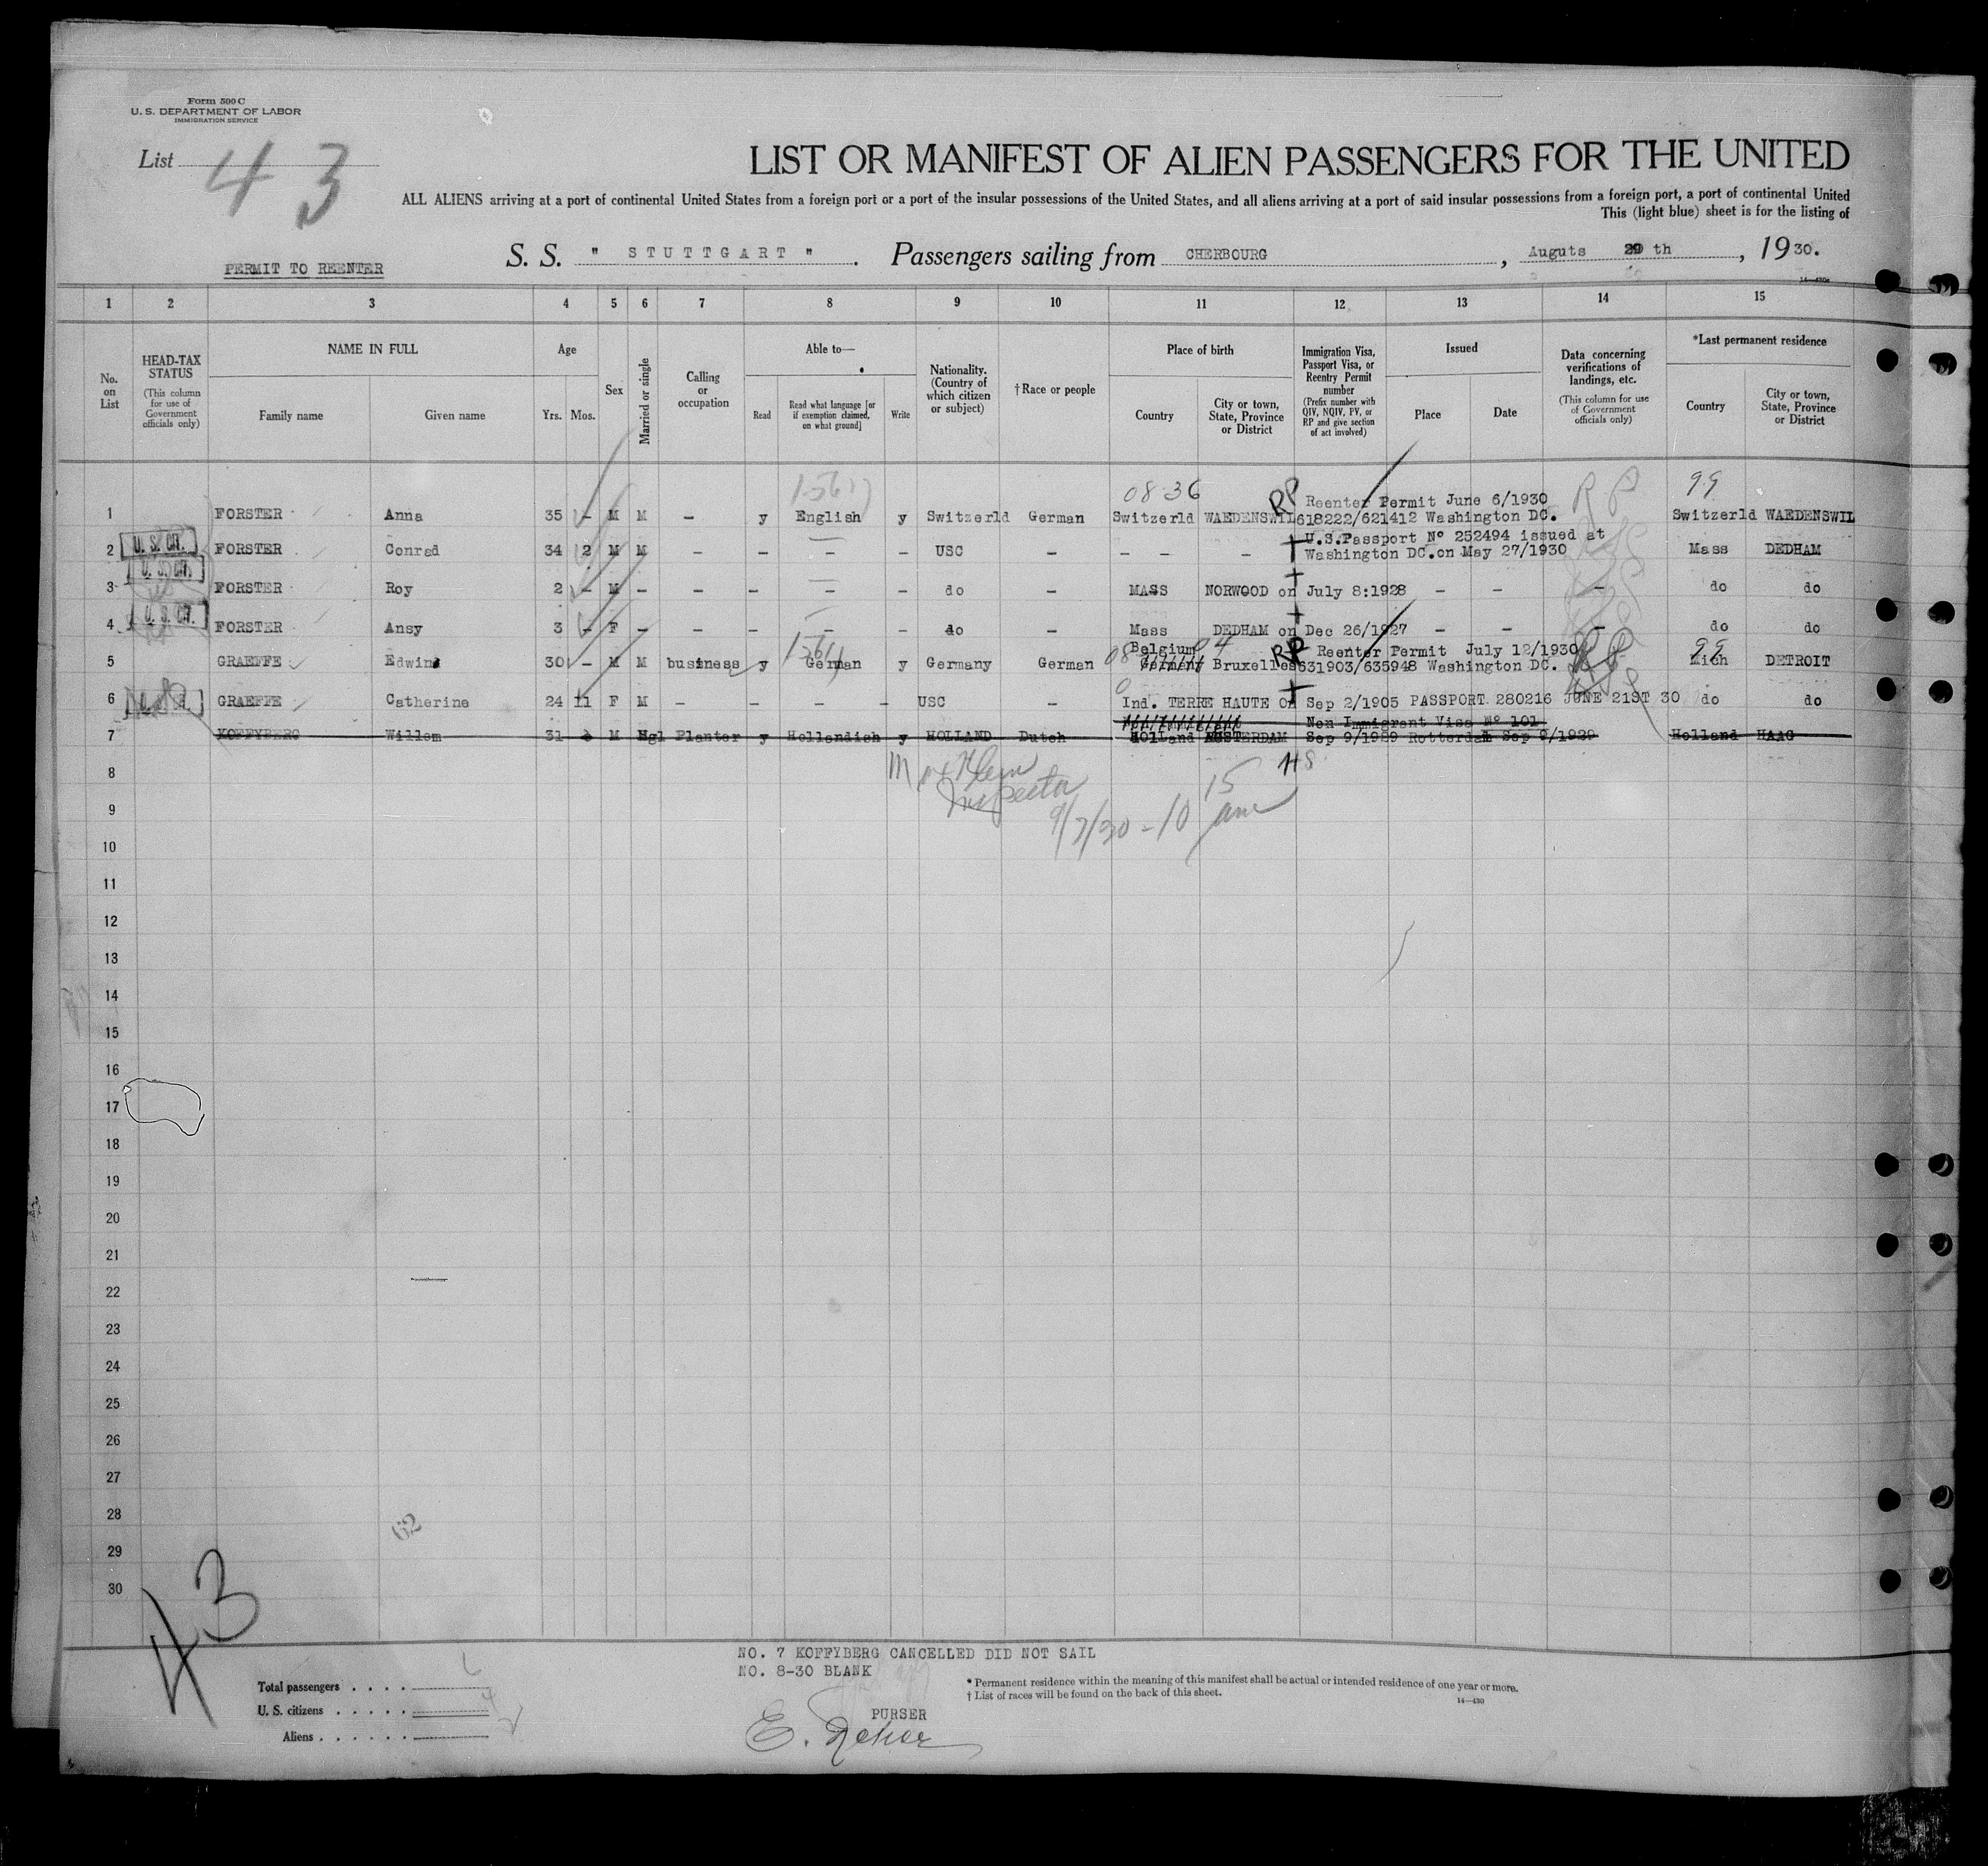 Form 500 C
U. S. DEPARTMENT OF LABOR
IMMIGRATION SERVICE
List 43
LIST OR MANIFEST OF ALIEN PASSENGERS FOR THE UNITED
ALL ALIENS arriving at a port of continental United States from a foreign port or a port of the insular possessions of the United States, and all aliens arriving at a port of said insular possessions from a foreign port, a port of continental United
This (light blue) sheet is for the listing of
PERMIT TO REENTER
S. S. " STUTTGART ". Passengers sailing from CHERBOURG, Auguts 29 th, 1930.
14—430a
1 2 3 4 5 6 7 8 9 10 11 12 13 14 15
No. on List
HEAD-TAX STATUS
(This column for use of Government officials only)
NAME IN FULL
Family name
Given name
Age
Yrs. Mos.
Sex
Married or single
Calling or occupation
Able to—
Read
Read what language [or if exemption claimed, on what ground]
Write
Nationality. (Country of which citizen or subject)
† Race or people
Place of birth
Country
City or town, State, Province or District
Immigration Visa, Passport Visa, or Reentry Permit number
(Prefix number with QIV, NQIV, PV, or RP and give section of act involved)
Issued
Place
Date
Data concerning verifications of landings, etc.
(This column for use of Government officials only)
*Last permanent residence
Country
City or town, State, Province or District
08 36 RP Reenter Permit June 6/1930 RP 99
1 FORSTER Anna 35 – M M – y English y Switzerld German Switzerld WAEDENSWIL 618222/621412 Washington DC. Switzerld WAEDENSWIL
U.S.Passport Nº 252494 issued at
2 U. S. CIT. FORSTER Conrad 34 2 M M – – – – USC – – – – Washington DC.on May 27/1930 Mass DEDHAM
U. S. CIT.
3 FORSTER Roy 2 – M – – – – – do – MASS NORWOOD on July 8:1928 – – – do do
4 U. S. CIT. FORSTER Ansy 3 – F – – – – – do – Mass DEDHAM on Dec 26/1927 – – – do do
Belgium RP Reenter Permit July 12/1930 RP 99
5 GRAEFFE Edwin 30 – M M business y German y Germany German Germany Bruxelles 631903/635948 Washington DC. Mich DETROIT
6 GRAEFFE Catherine 24 11 F M – – – – USC – Ind. TERRE HAUTE on Sep 2/1905 PASSPORT 280216 JUNE 21ST 30 do do
Non Immigrant Visa Nº 101
7 KOFFYBERG Willem 31 M Sgl Planter y Hollandish y HOLLAND Dutch HOLLand AMSTERDAM Sep 9/1929 Rotterdam Sep 9/1929 Holland HAAG
HS
8
Inspector
9
9/7/30 - 10 15 am
10
11
12
13
14
15
16
17
18
19
20
21
22
23
24
25
26
27
28
62
29
30
43
NO. 7 KOFFYBERG CANCELLED DID NOT SAIL
NO. 8-30 BLANK
Total passengers . . . . 6
U. S. citizens . . . . . 4
Aliens . . . . . . 2
PURSER
* Permanent residence within the meaning of this manifest shall be actual or intended residence of one year or more.
† List of races will be found on the back of this sheet.
14—430